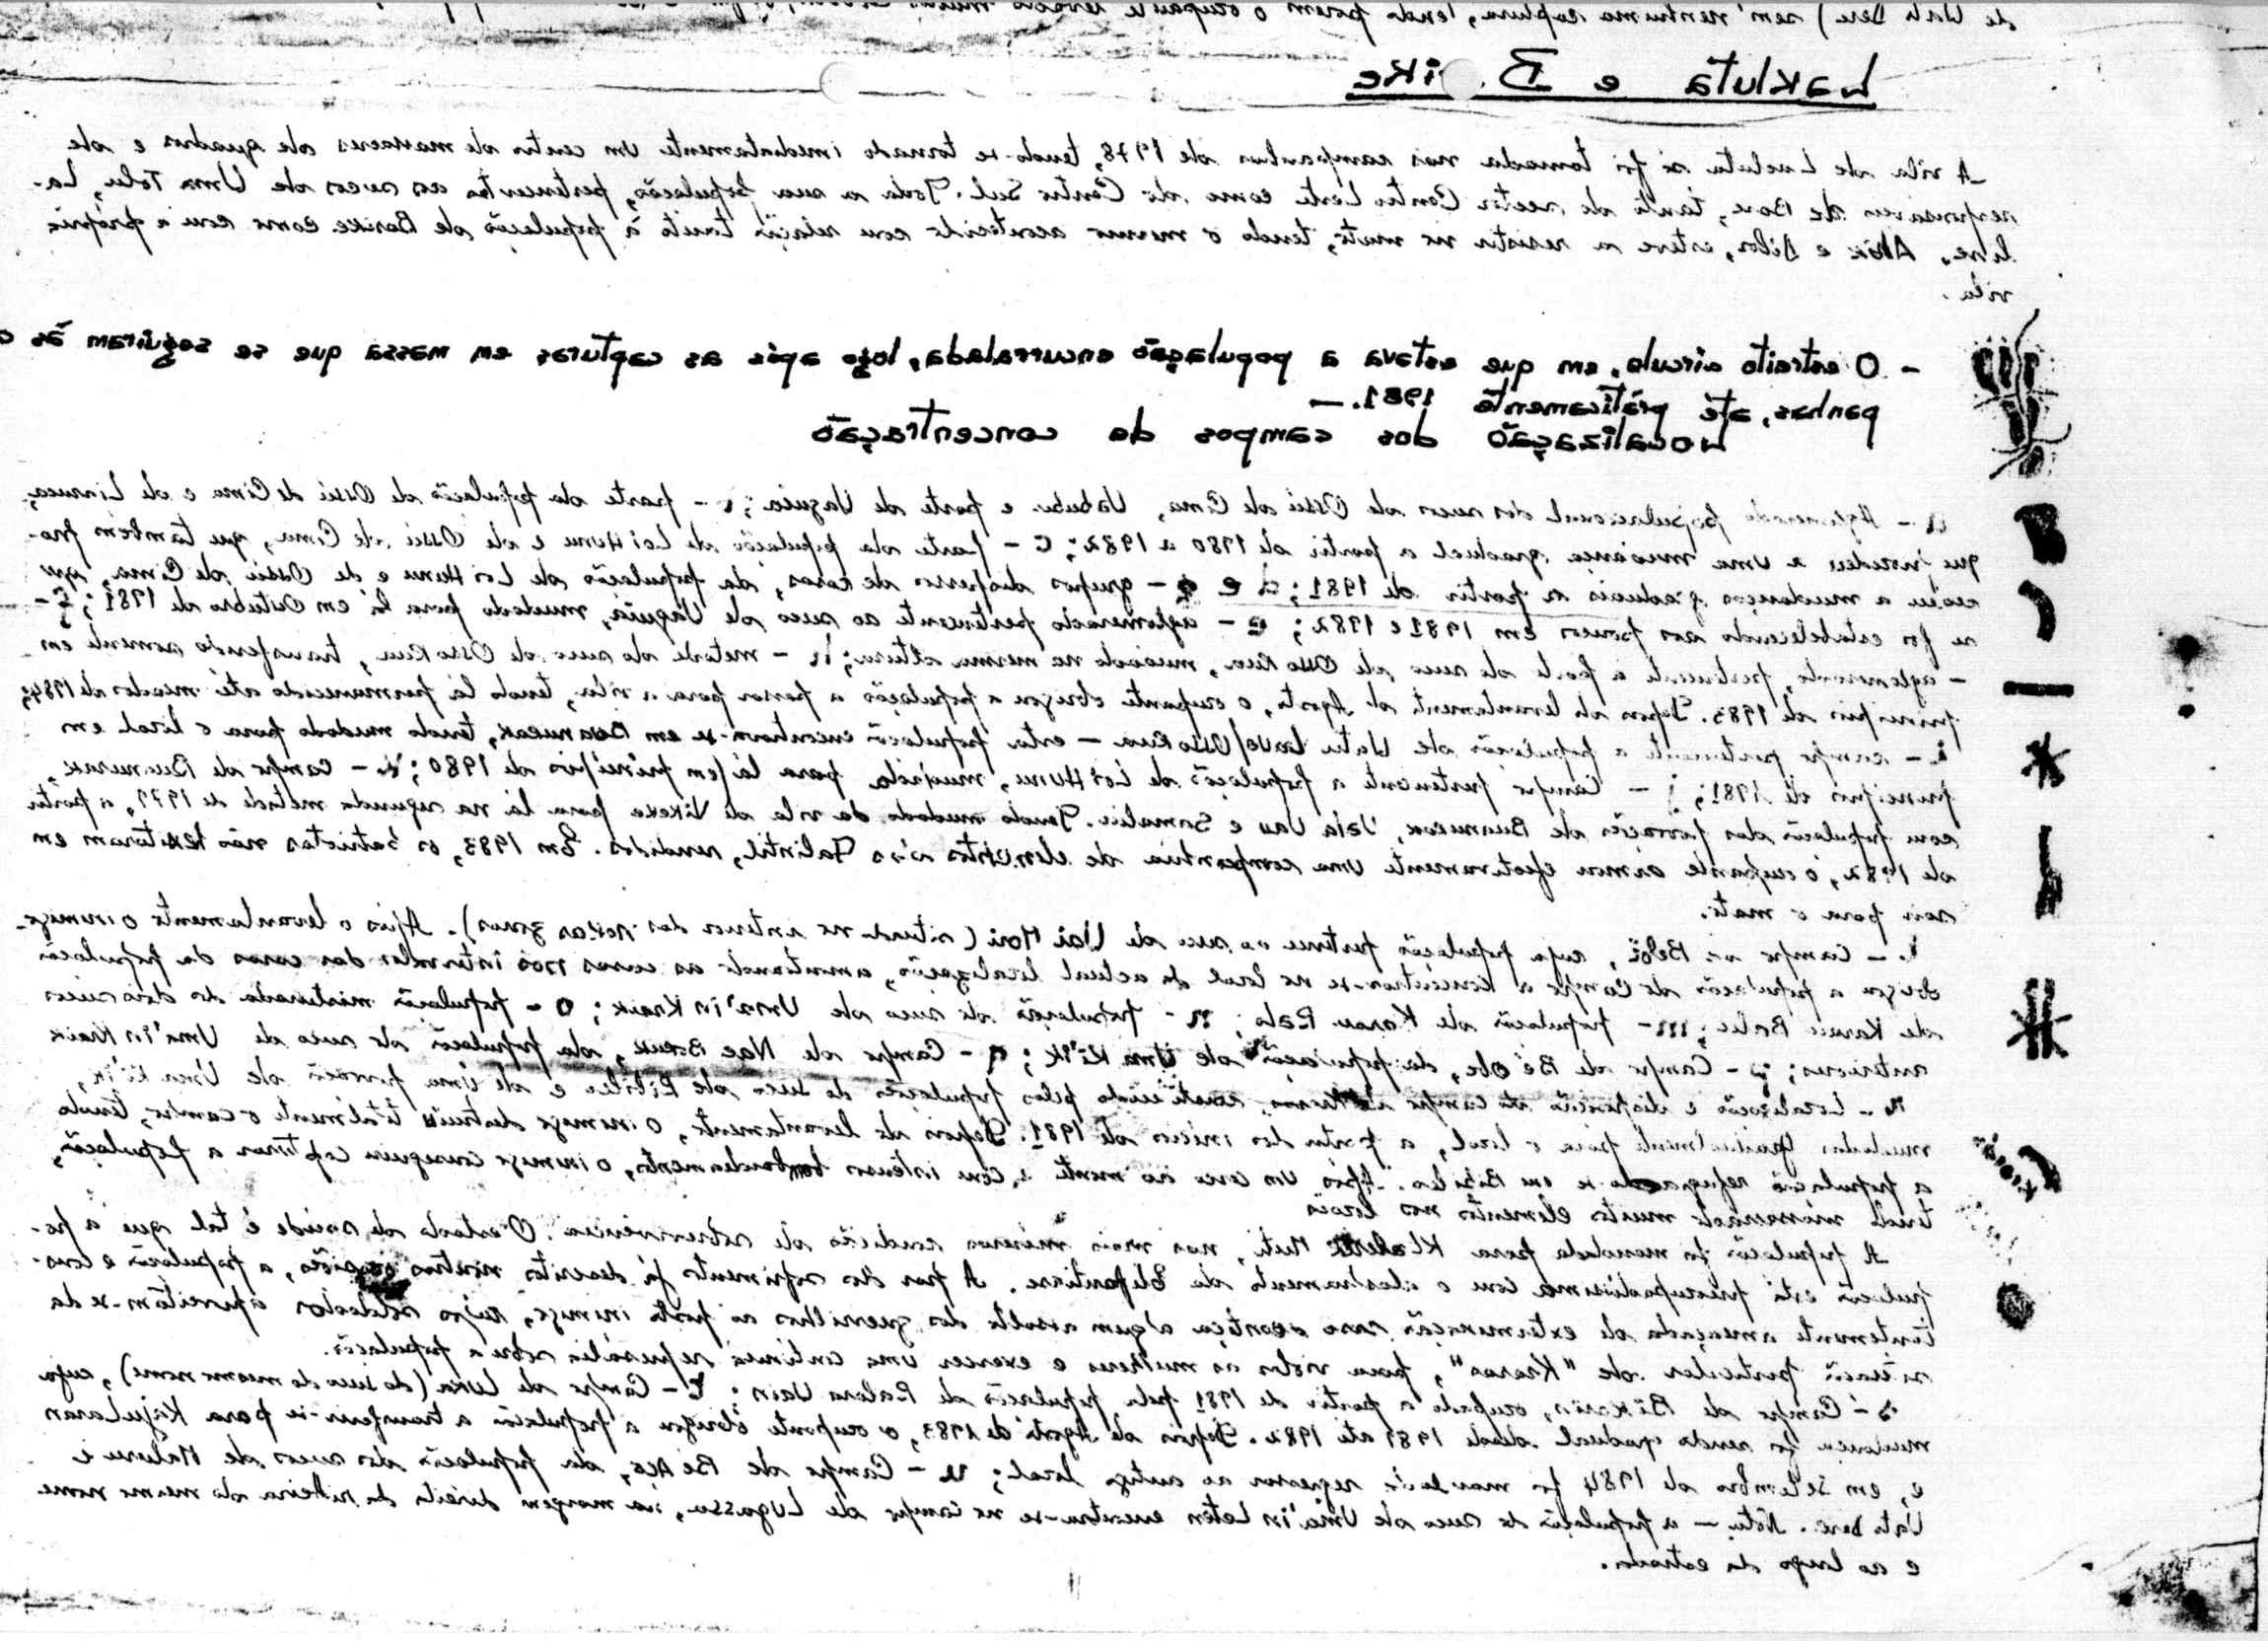 de Uato Dere) sem nenhuma captura, tendo porém o ocupante
Lakluta e B. ike
A vila de Lacluta só foi tomada nas campanhas de 1978, tendo-se tornado imediatamente um centro de massacres de quadros e de
responsaveis de Base, tanto do sector Centro Leste como do Centro Sul. Toda a sua população, pertencentes aos sucos de Uma Tolu, La-
line, Ahik e Dilor, esteve a resistir no mato, tendo o mesmo acontecido com relação tanto à população de Barike como com a própria
vila.
- O estreito circulo, em que estava a população encurralada, logo após as capturas em massa que se seguiram às
panhas, até práticamente 1981. -
Localização dos campos da concentração
- Aglomerado populacional dos sucos de Ossú de Cima, Uabubu e parte de Uaguia; - parte da população de Ossú de Cima e de Liaruca,
que procedeu a uma mudança gradual a partir de 1980 a 1982; c - parte da população de Loi Hunu e de Ossú de Cima, que também pro-
cedeu a mudanças graduais a partir de 1981; d e - grupos dispersos de casas, da população de Loi Hunu e de Ossú de Cima, que
se foi estabelecendo aos poucos em 1981 e 1982; e - aglomerado pertencente ao suco de Uaguia, mudado para lá em Outubro de 1981; f -
- aglomerado, pertencente à parte do suco de Osso Rua, mudado na mesma altura; h - metade do suco de Osso Rua, transferido somente em
princípios de 1983. Depois do levantamento de Agosto, o ocupante obrigou a população a passar para a vila, tendo lá permanecido até meados de 1984;
i - campo pertencente a população de Uatu Lavo/Osso Rua - esta população encontram-se em Buanurak, tendo mudado para o local em
princípios de 1981; j - Campo pertencente a população de Loi Hunu, mudada para lá em princípios de 1980; - Campo de Buanurak,
com população das povoações de Buanurak, Uaia Uau e Samalia. Tendo mudado da vila de Vikeke para lá na segunda metade de 1979, a partir
de 1982, o ocupante armou efectivamente uma companhia de elementos das Falintil, rendidos. Em 1983, os patriotas não hesitaram em
sair para o mato.
- Campo de Beloi, cuja população pertence ao suco de Uai Mori (situado no anterior das nossas zonas). Após o levantamento o inimigo
obrigou a população do Campo a concentrar-se no local da actual localização, amontoando as casas nos intervalos das casas da população
de Karau Balu; m - população de Karau Balo; n - população do suco de Uma'in Kraik; o - população misturada dos dois sucos
anteriores; p - Campo de Bé Obe, da população de Uma Ki'ik; q - Campo de Nae Boruk, da população do suco de Uma'in Kraik
- Localização e disposição do campo de Kraras, constituido pelas populações do suco de Bibileo e de uma povoação de Uma Ki'ik,
mudadas gradualmente para o local, a partir dos inícios de 1981. Depois do levantamento, o inimigo destruiu totalmente o campo, tendo
a população refugiado-se em Bibileo. Após um cerco ao monte e com intensos bombardeamentos, o inimigo conseguiu capturar a população,
tendo massacrado muitos elementos nos locais
A população foi mandada para Klalerek Muti, nas mais míseras condições de sobrevivência. O estado de saúde é tal que a po-
pulação está preocupadíssima com o alastramento da Elefantíase. A par dos sofrimentos já descritos noutras ocasiões, a população é cons-
tantemente ameaçada de exterminação caso aconteça algum assalto dos guerrilhos ao posto inimigo, cujos soldados aproveitam-se da
situação particular de "Kraras", para violar as mulheres e exercer uma contínua represália sobre a população.
s - Campo de Bikarin, ocupado a partir de 1981 pela população de Ralara Uain; t - Campo de Luka (do suco do mesmo nome), cuja
mudança foi sendo gradual desde 1981 até 1982. Depois de Agosto de 1983, o ocupante obrigou a população a transferir-se para Kijularan
e, em Setembro de 1984 foi mandada regressar ao antigo local; u - Campo de Bé Aço, da população dos sucos de Maluru e
Uato Dere. Nota - a população do suco de Uma'in Leten encontra-se no campo de Lugassa, na margem direita da ribeira do mesmo nome
e ao longo da estrada.